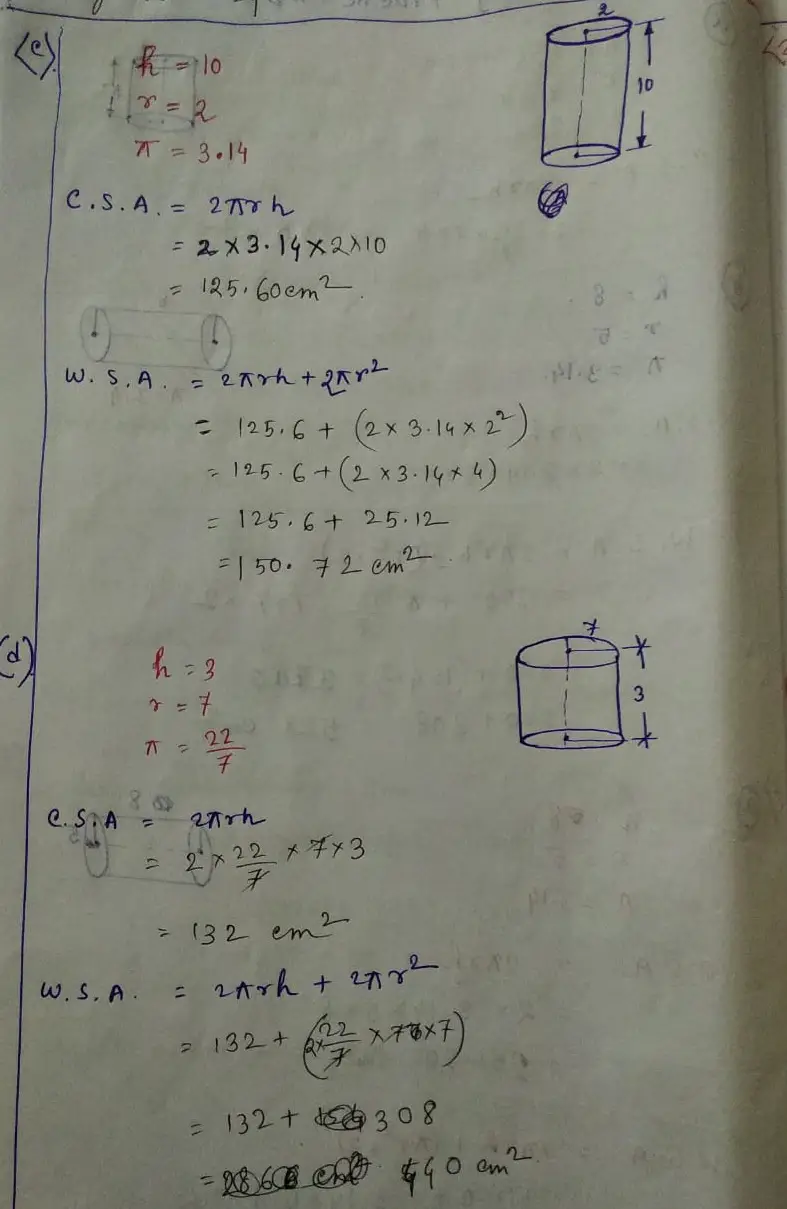 (c)
2
h = 10
10
r = 2
π = 3.14
C.S.A. = 2πrh
= 2 × 3.14 × 2 × 10
= 125.60 cm²
W.S.A. = 2πrh + 2πr²
= 125.6 + (2 × 3.14 × 2²)
= 125.6 + (2 × 3.14 × 4)
= 125.6 + 25.12
= 150.72 cm²
(d)
7
h = 3
3
r = 7
π = 22/7
C.S.A = 2πrh
= 2 × 22/7 × 7 × 3
= 132 cm²
W.S.A. = 2πrh + 2πr²
= 132 + (2× 22/7 × 7 × 7)
= 132 + 308
= 440 cm²